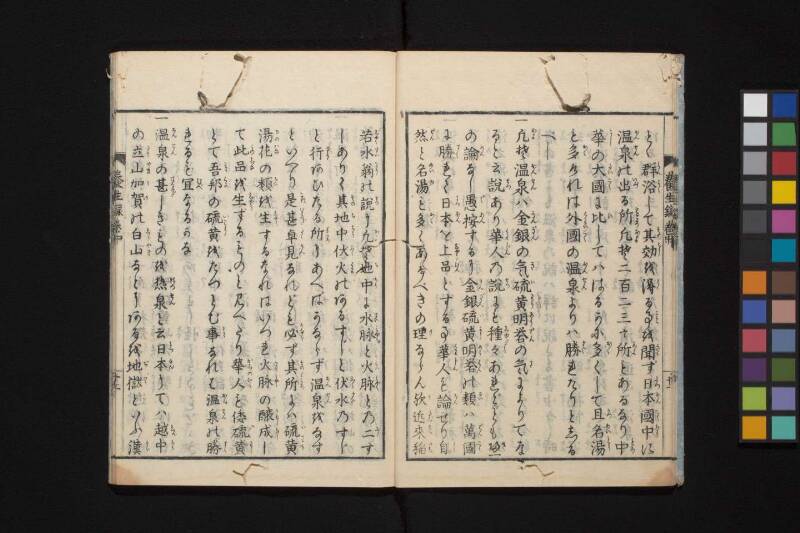 とく群浴して其効を得るを聞す日本國中に
温泉の出る所凡そ二百二三十所とあるなり中
華の大國に比してはるかに多くして且名湯
も多けれは外國の温泉よりは勝れたりとしる
べし
一凡そ温泉は金銀の気硫黄明礬の気によりてなる
ると云説あり華人の説にも種々あれども
の論なし愚按するに金銀硫黄明礬の類は萬國
に勝れて日本を上品とする事華人も論せり自
然と名湯も多くあるべきの理ならん歟近来稲
若水翁の説に凡そ地中に水脉と火脉との二す
しありて其地中伏火のあるすしと伏水のすし
と行あひたる所にあへはかならす温泉をなす
といへり是甚卓見なれども必す其所には硫黄
湯花の類を生するなれはいつれ火脉の醸成し
て此品を生するものと見へたり華人も倭硫黄
とて吾邦の硫黄をたつとむ事なれは温泉の勝
れるも宜なるかな
一温泉の甚しきものを熱泉と云日本にては越中
の立山加賀の白山なとにあるを地獄といふ漢
養生録巻中